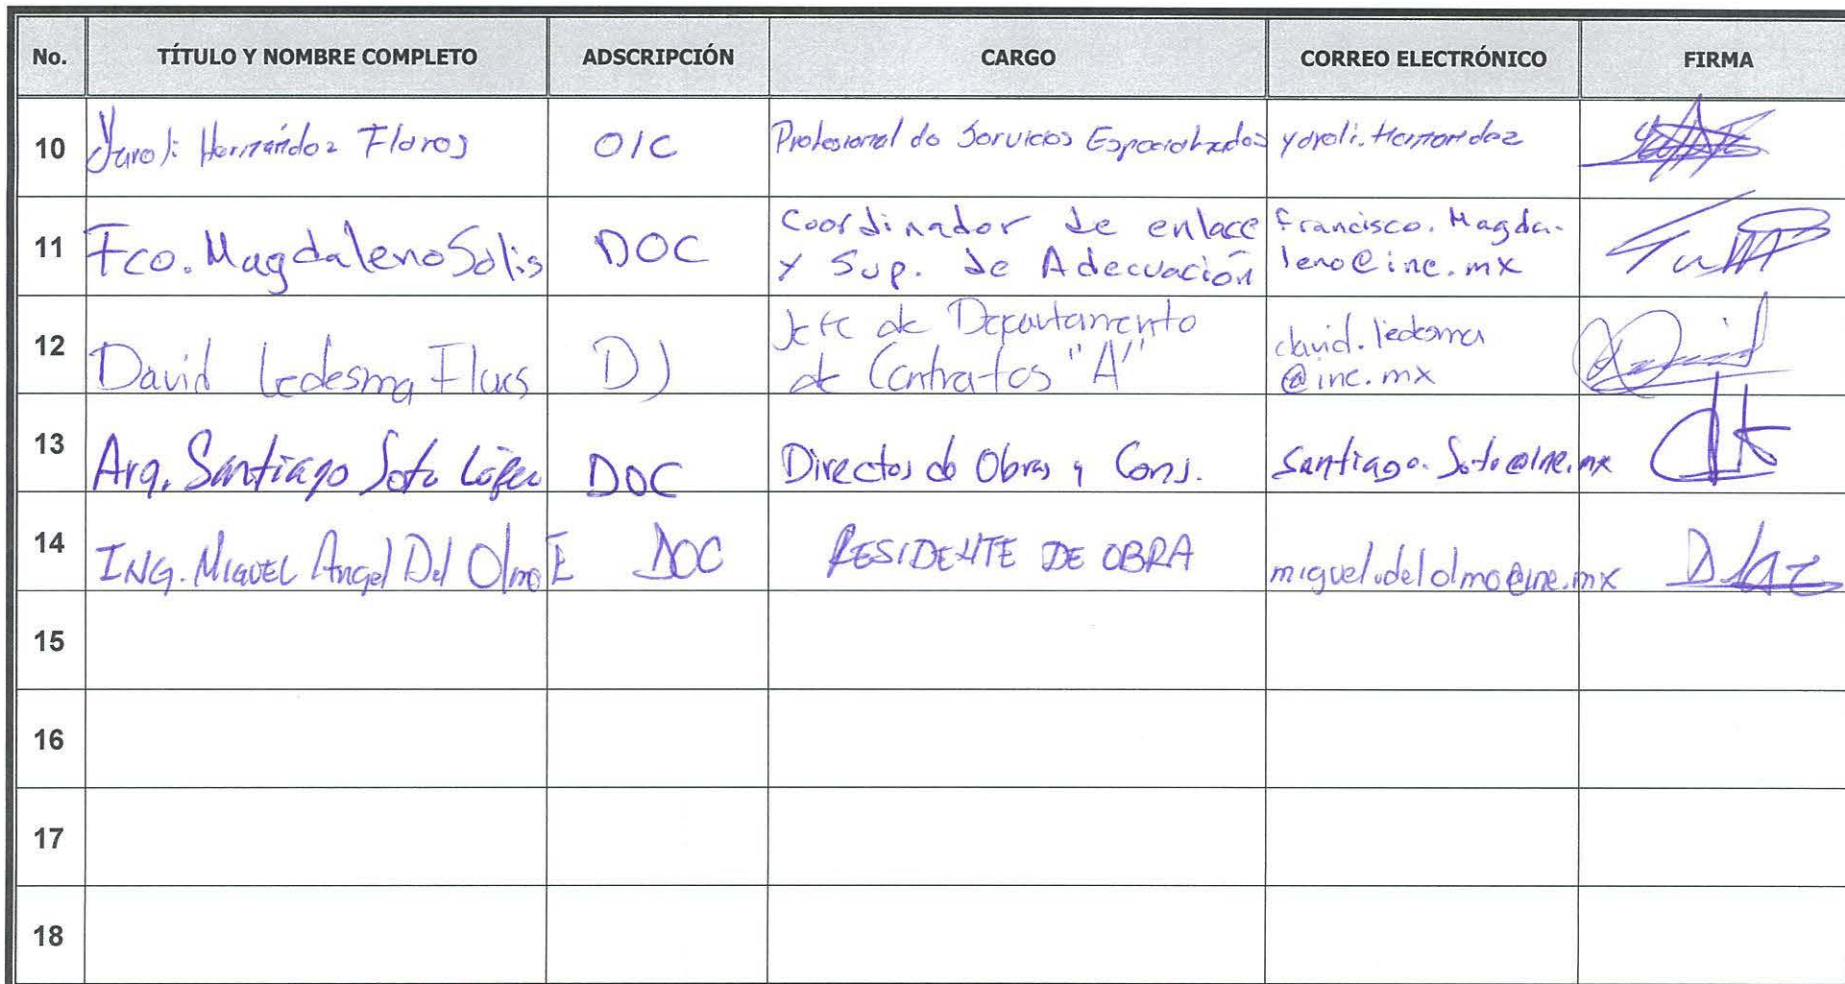 No. TÍTULO Y NOMBRE COMPLETO ADSCRIPCIÓN CARGO CORREO ELECTRÓNICO FIRMA
10 Yaroli Hernández Flores OIC Profesional de Servicios Especializados yaroli.Hernandez
11 Fco. Magdaleno Solis DOC Coordinador de enlace Francisco.Magda-
y Sup. de Adecuación leno@ine.mx
12 David Ledesma Flores DJ Jefe de Departamento david.ledesma
de Contratos "A" @ine.mx
13 Arq. Santiago Soto López DOC Director de Obras y Cons. Santiago.Soto@ine.mx
14 ING. MIGUEL Angel Del Olmo E DOC RESIDENTE DE OBRA miguel.delolmo@ine.mx
15
16
17
18